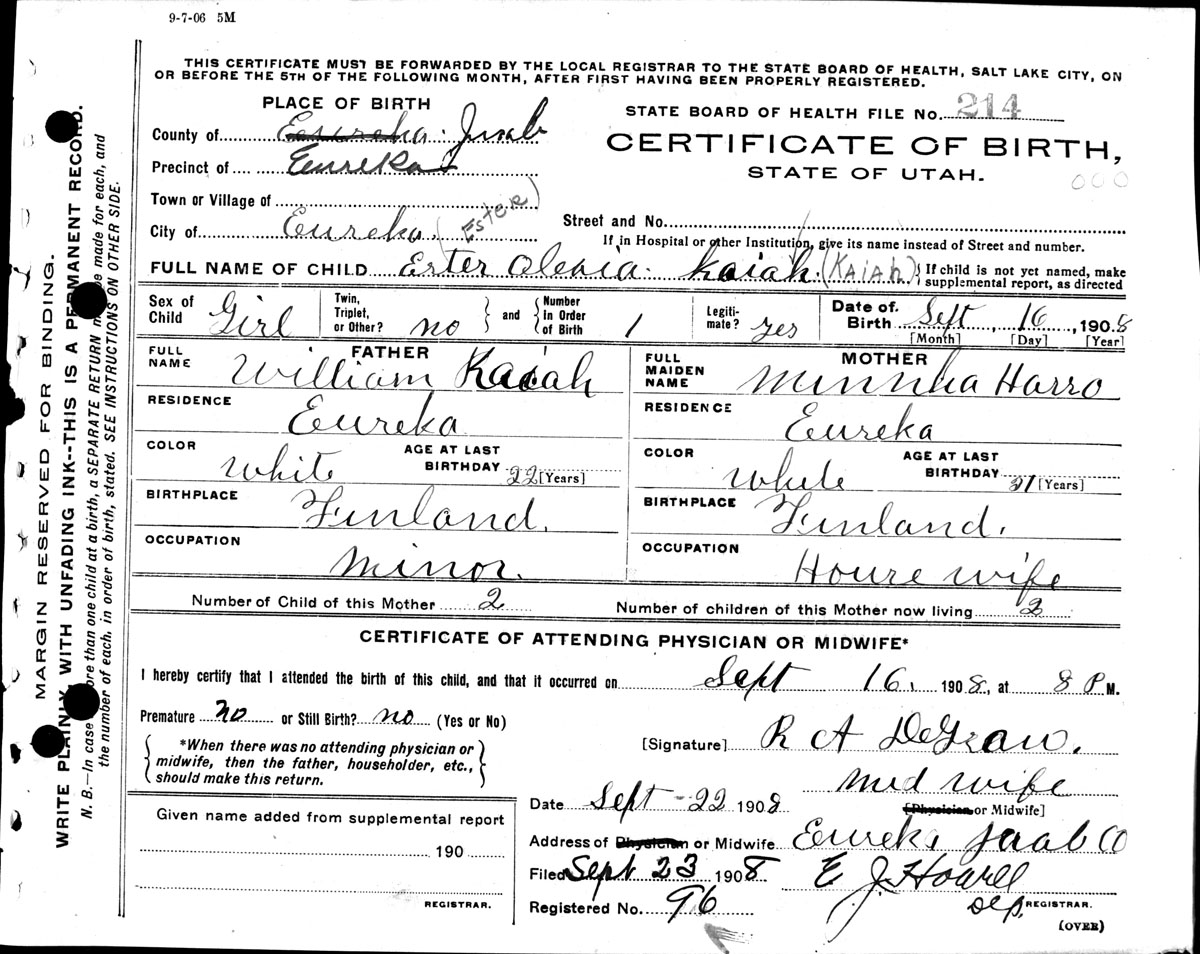 9-7-06 5M
THIS CERTIFICATE MUST BE FORWARDED BY THE LOCAL REGISTRAR TO THE STATE BOARD OF HEALTH, SALT LAKE CITY, ON
OR BEFORE THE 5TH OF THE FOLLOWING MONTH, AFTER FIRST HAVING BEEN PROPERLY REGISTERED.
PLACE OF BIRTH
STATE BOARD OF HEALTH FILE No. 214
County of Eureka Juab
CERTIFICATE OF BIRTH,
Precinct of Eureka
STATE OF UTAH.
000
Town or Village of
City of Eureka (Ester)
Street and No.
If in Hospital or other Institution, give its name instead of Street and number.
FULL NAME OF CHILD Ester Kaiah (KAIAH)
{ If child is not yet named, make
supplemental report, as directed
Sex of Child Girl Twin, Triplet, or Other? no and Number In Order of Birth 1 Legiti-mate? yes Date of Birth Sept 16, 1908
[Month] [Day] [Year]
FATHER
FULL NAME William Kaiah
RESIDENCE Eureka
COLOR White AGE AT LAST BIRTHDAY 22 [Years]
BIRTHPLACE Finland.
OCCUPATION Minor.
MOTHER
FULL MAIDEN NAME Minnha Harro
RESIDENCE Eureka
COLOR White AGE AT LAST BIRTHDAY [Years]
BIRTHPLACE Finland.
OCCUPATION House wife
Number of Child of this Mother 2 Number of children of this Mother now living 2
CERTIFICATE OF ATTENDING PHYSICIAN OR MIDWIFE*
I hereby certify that I attended the birth of this child, and that it occurred on Sept 16, 1908, at 8 P.M.
Premature no or Still Birth? no (Yes or No)
*When there was no attending physician or
midwife, then the father, householder, etc.,
should make this return.
[Signature] R A DeGraw.
Mid wife
[Physician or Midwife]
Date Sept -22 1908
Address of Physician or Midwife Eureka Juab Co
Filed Sept 23 1908 E J Howell
Dep. REGISTRAR.
Registered No. 96
(OVER)
Given name added from supplemental report
190
REGISTRAR.
MARGIN RESERVED FOR BINDING.
WRITE PLAINLY WITH UNFADING INK--THIS IS A PERMANENT RECORD.
N. B.—In case more than one child at a birth, a SEPARATE RETURN must be made for each, and
the number of each, in order of birth, stated. SEE INSTRUCTIONS ON OTHER SIDE.